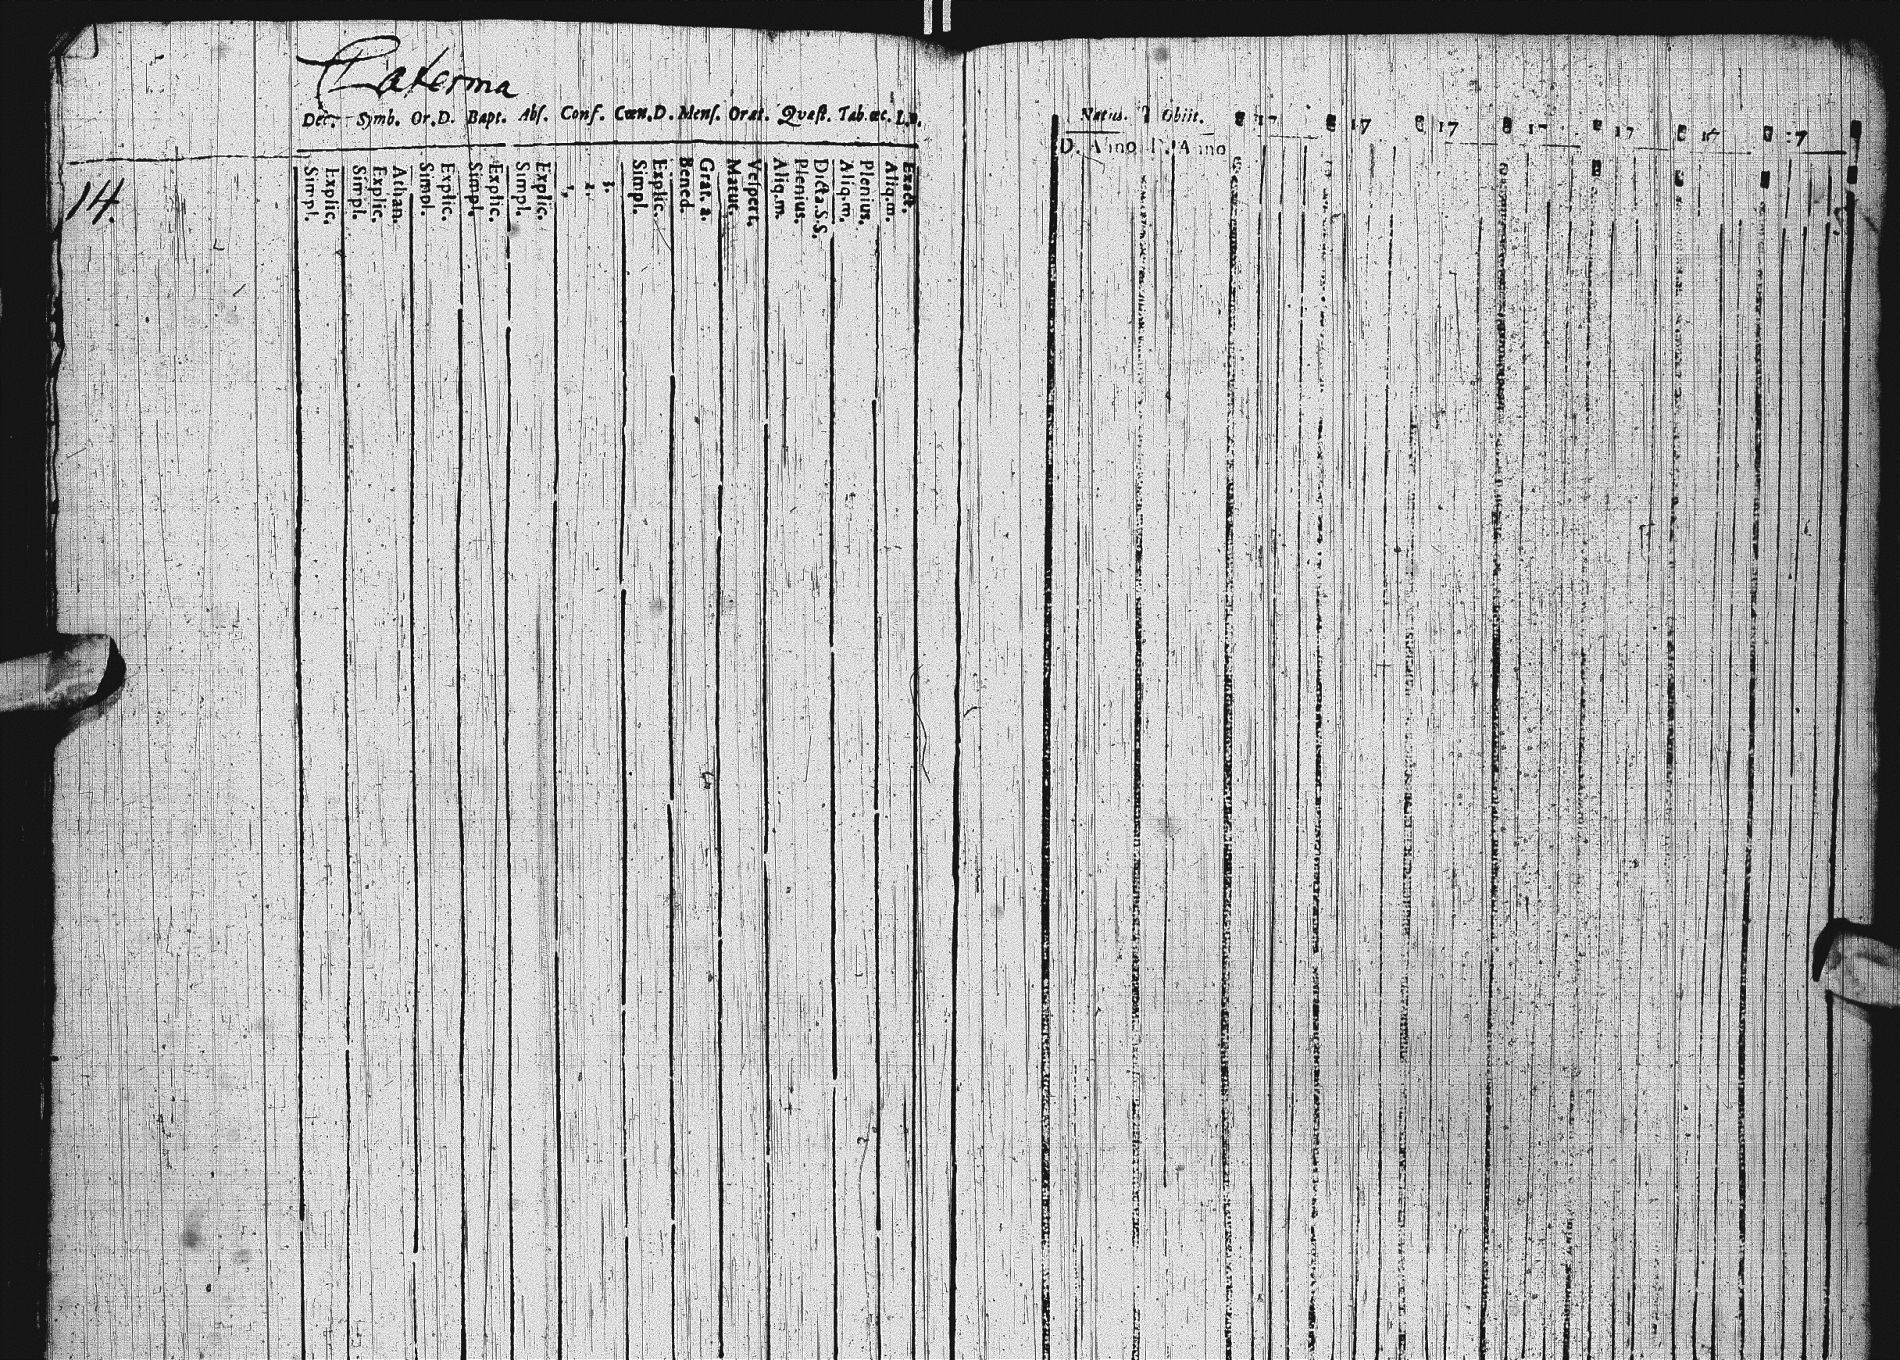 Dec. Symb. Or.D. Bapt. Abs. Conf. Cœn.D. Mens. Orat. Quæst. Tab.œc. L.n.
14.
Simpl.
Explic.
Simpl.
Explic.
Athan.
Simpl.
Explic.
Simpl.
Explic.
Simpl.
Explic.
1.
2.
3.
Simpl.
Explic.
Bened.
Grat. a.
Matut.
Vespert.
Aliq.m.
Plenius.
Dicta.S.S.
Aliq.m.
Plenius.
Aliq.m.
Exact.
Natus. Obiit. 17 17 17 17 17 17 17
D. Anno D. Anno